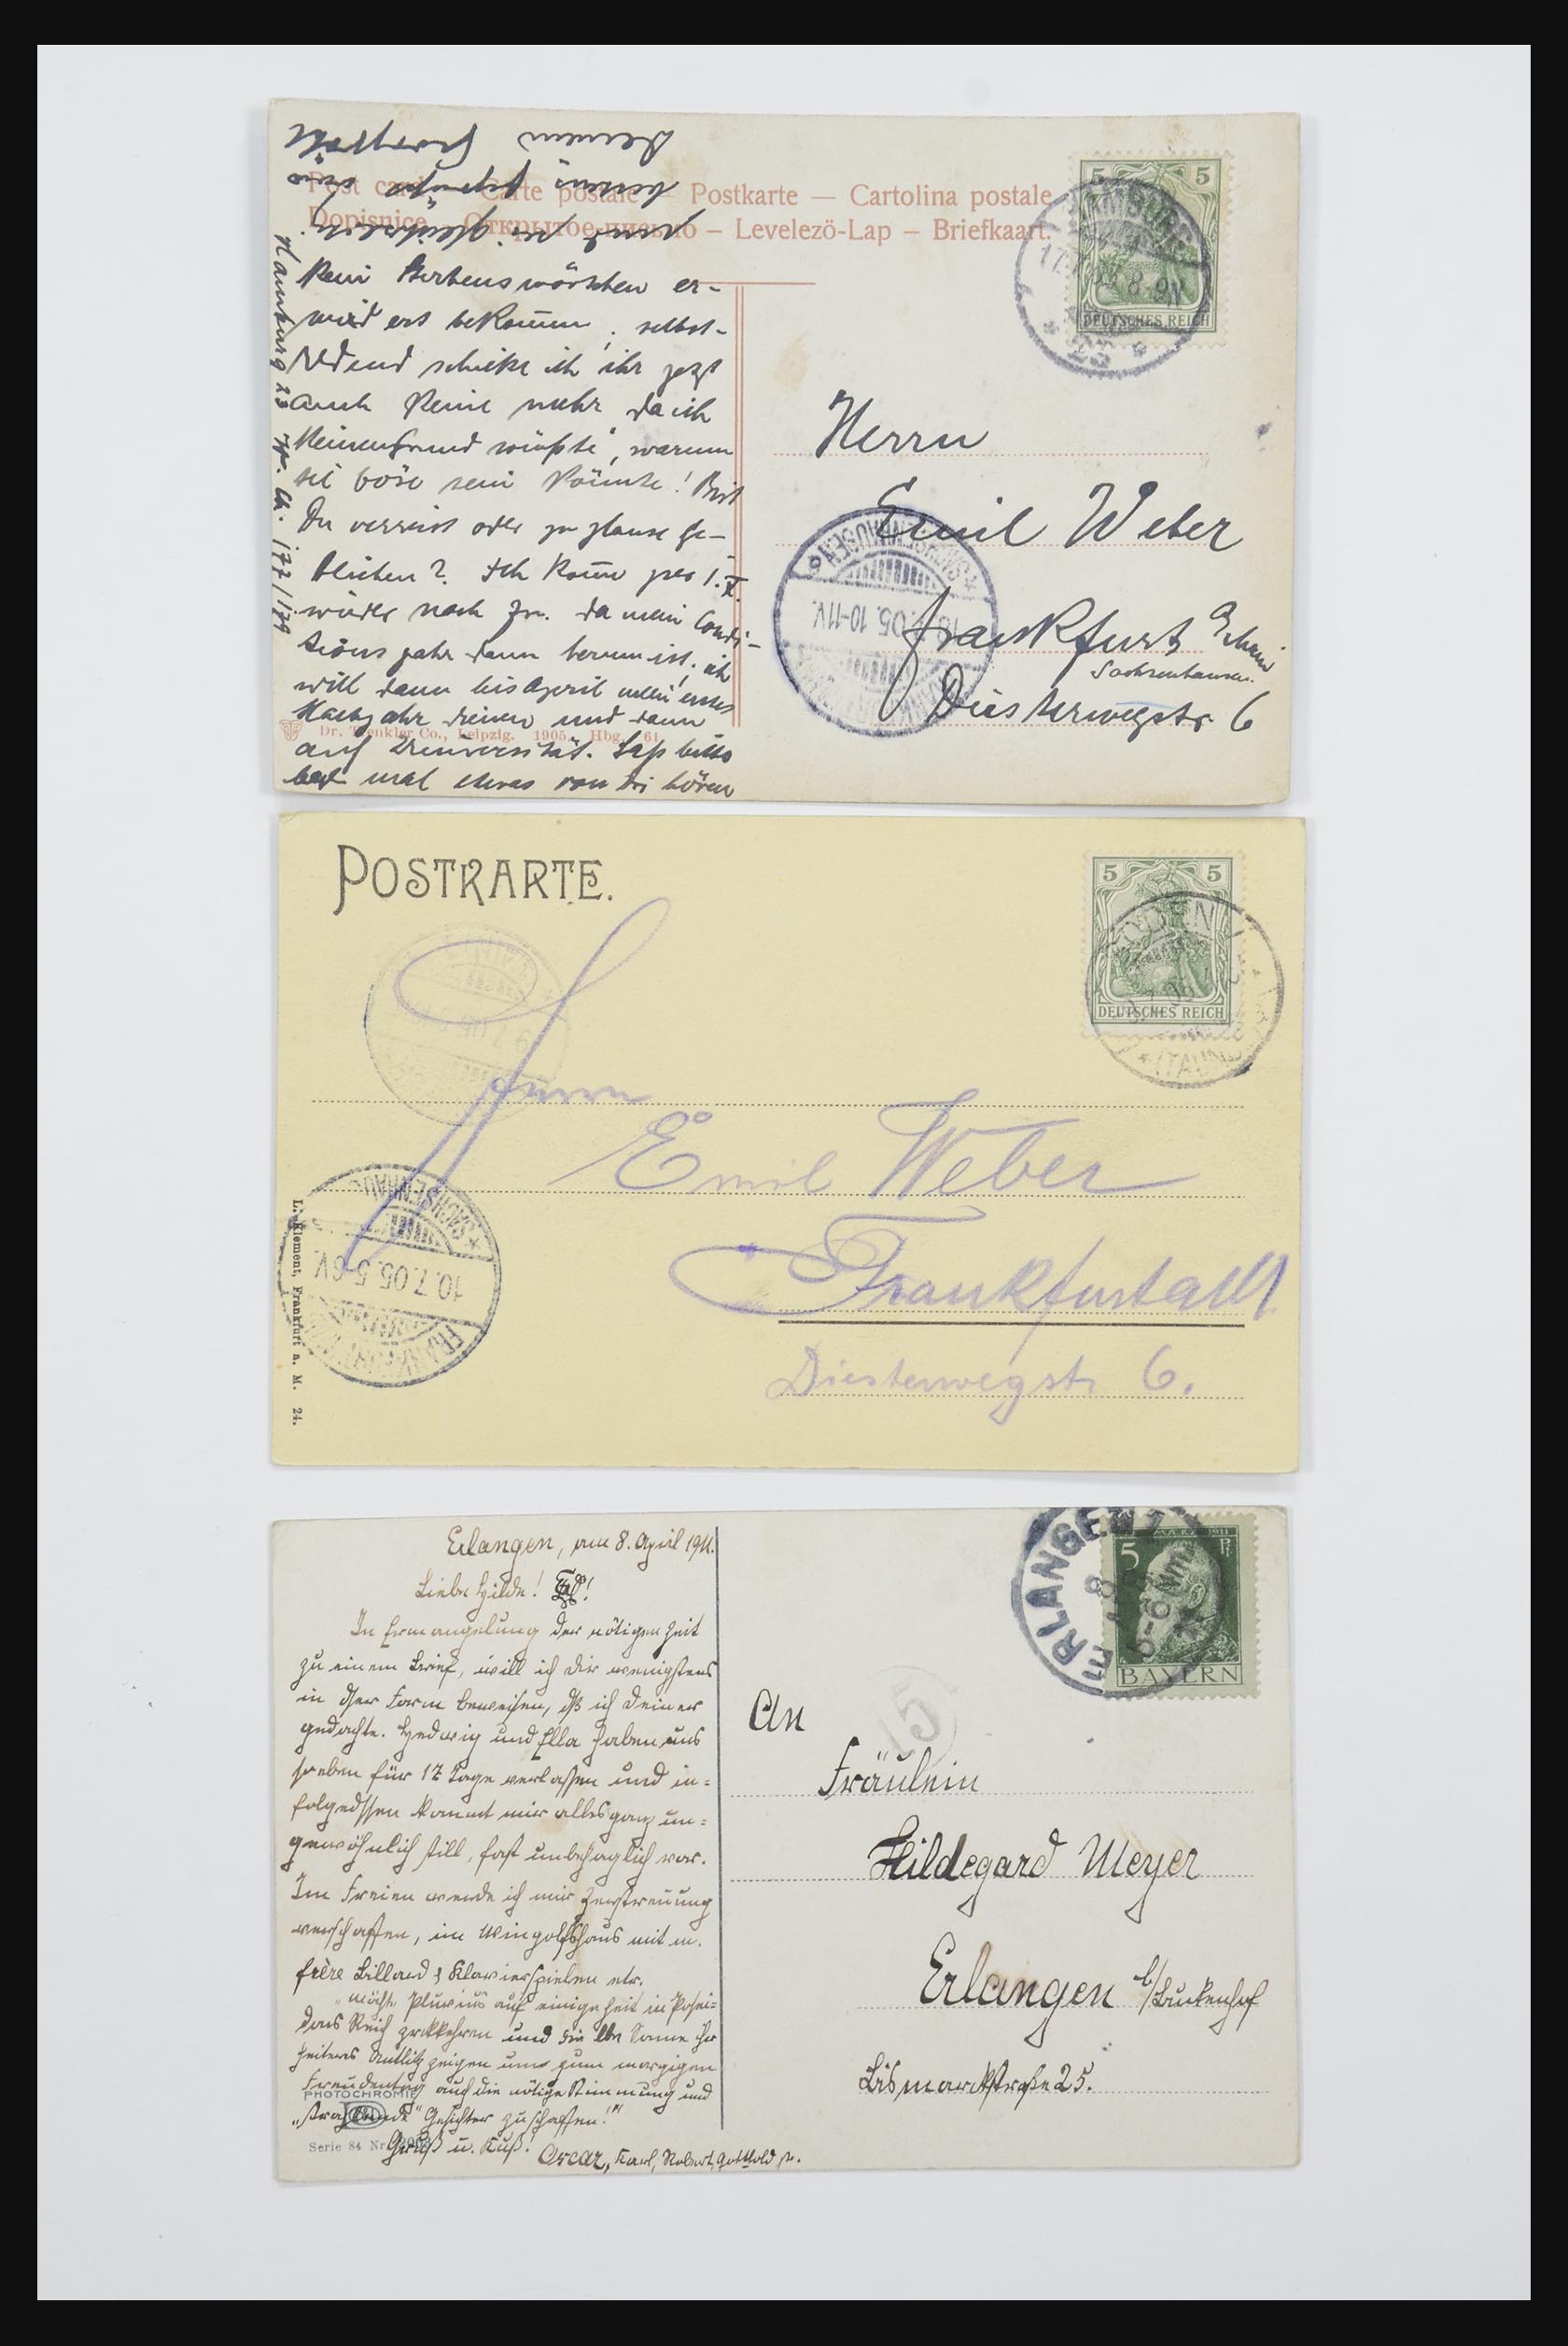 Post card — Carte postale — Postkarte — Cartolina postale
Dopisnice — Открытое письмо — Levelezö-Lap — Briefkaart.
5 5
DEUTSCHES REICH
HAMBURG
8-9N
kein Sterbenswörtchen er-
wird erst bekommen, selbst-
redend schicke ich ihr jetzt
auch keine mehr, da ich
keinen Grund wüßte, warum
sie böse sein könnte! Bist
Du verreist oder zu Hause ge-
blieben? Ich komme per 1.X.
wieder nach da mein Condi-
tions jahr dann herum ist, ich
will dann bis April mein erstes
und dann
auf Universität. Laß bitte
bald mal etwas von Dir hören
Hamburg
177/179
Herrn
Emil Weber
Frankfurt
Sachsenhausen.
Diesterwegstr. 6
SACHSENHAUSEN
7.05. 10-11V.
Dr. Trenkler Co., Leipzig. 1905. Hbg. 61
POSTKARTE.
5 5
DEUTSCHES REICH
(TAUNUS)
Herrn
Emil Weber
Frankfurt a/M
Diesterwegstr 6.
SACHSENHAUSEN
10.7.05. 5-6V.
FRANKFURT
L. Klement, Frankfurt a. M. 24.
Erlangen, am 8. April 1911.
Liebe Hilde!
In Ermangelung der nötigen Zeit
zu einem Brief, will ich dir wenigstens
in dser Form beweisen, dß ich deiner
gedachte. Hedwig und Ella haben uns
soeben für 17 Tage verlassen und in=
folgedssen kommt mir alles ganz un=
gewöhnlich still, fast unbehaglich vor.
Im Freien werde ich mir Zerstreuung
verschaffen, im Wingolfshaus mit m.
frère Billard & Klavierspielen etc.
„Möchte Pluvius auf einige Zeit in Posei=
dons Reich zrückkehren und die lbe Sonne ihr
heiteres Antlitz zeigen um zum morgigen
Freudentag auch die nötige Stimmung und
„strahlende" Gesichter zu schaffen!"
Gruß u. Kuß! Oscar, Karl, Robert, Gotthold
PHOTOCHROMIE
Serie 84 Nr.
ERLANGEN 1
8
5-6 Nm
1911
5 Pf
BAYERN
15
An
Fräulein
Hildegard Meyer
Erlangen b/Buckenhof
Bismarckstraße 25.